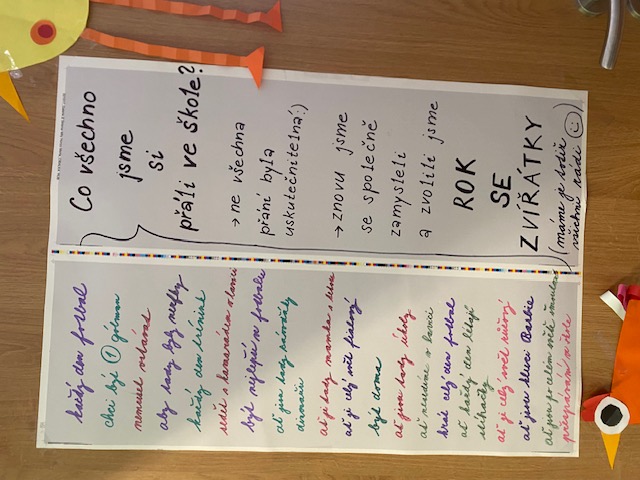 Co všechno
jsme
si
přáli ve škole?
→ ne všechna
přání byla
uskutečnitelná:)
→ znovu jsme
se společně
zamysleli
a zvolili jsme
ROK
SE
ZVÍŘÁTKY
(máme je totiž
všichni rádi)
každý den fotbal
chci být 1 gólman
nemuset vstávat
aby tady byly
každý den
sedět s kamarádem v lavici
být nejlepší ve fotbale
ať jsou tady závodky
ať je tady mamka s
ať je celý svět fialový
být doma
ať jsou tady úkoly
ať nesedíme v lavici
hrát celý den fotbal
ať každý den létají
stíhačky
ať je celý svět růžový
ať jsou kluci Barbie
ať jsou po celém světě
přespávání ve škole